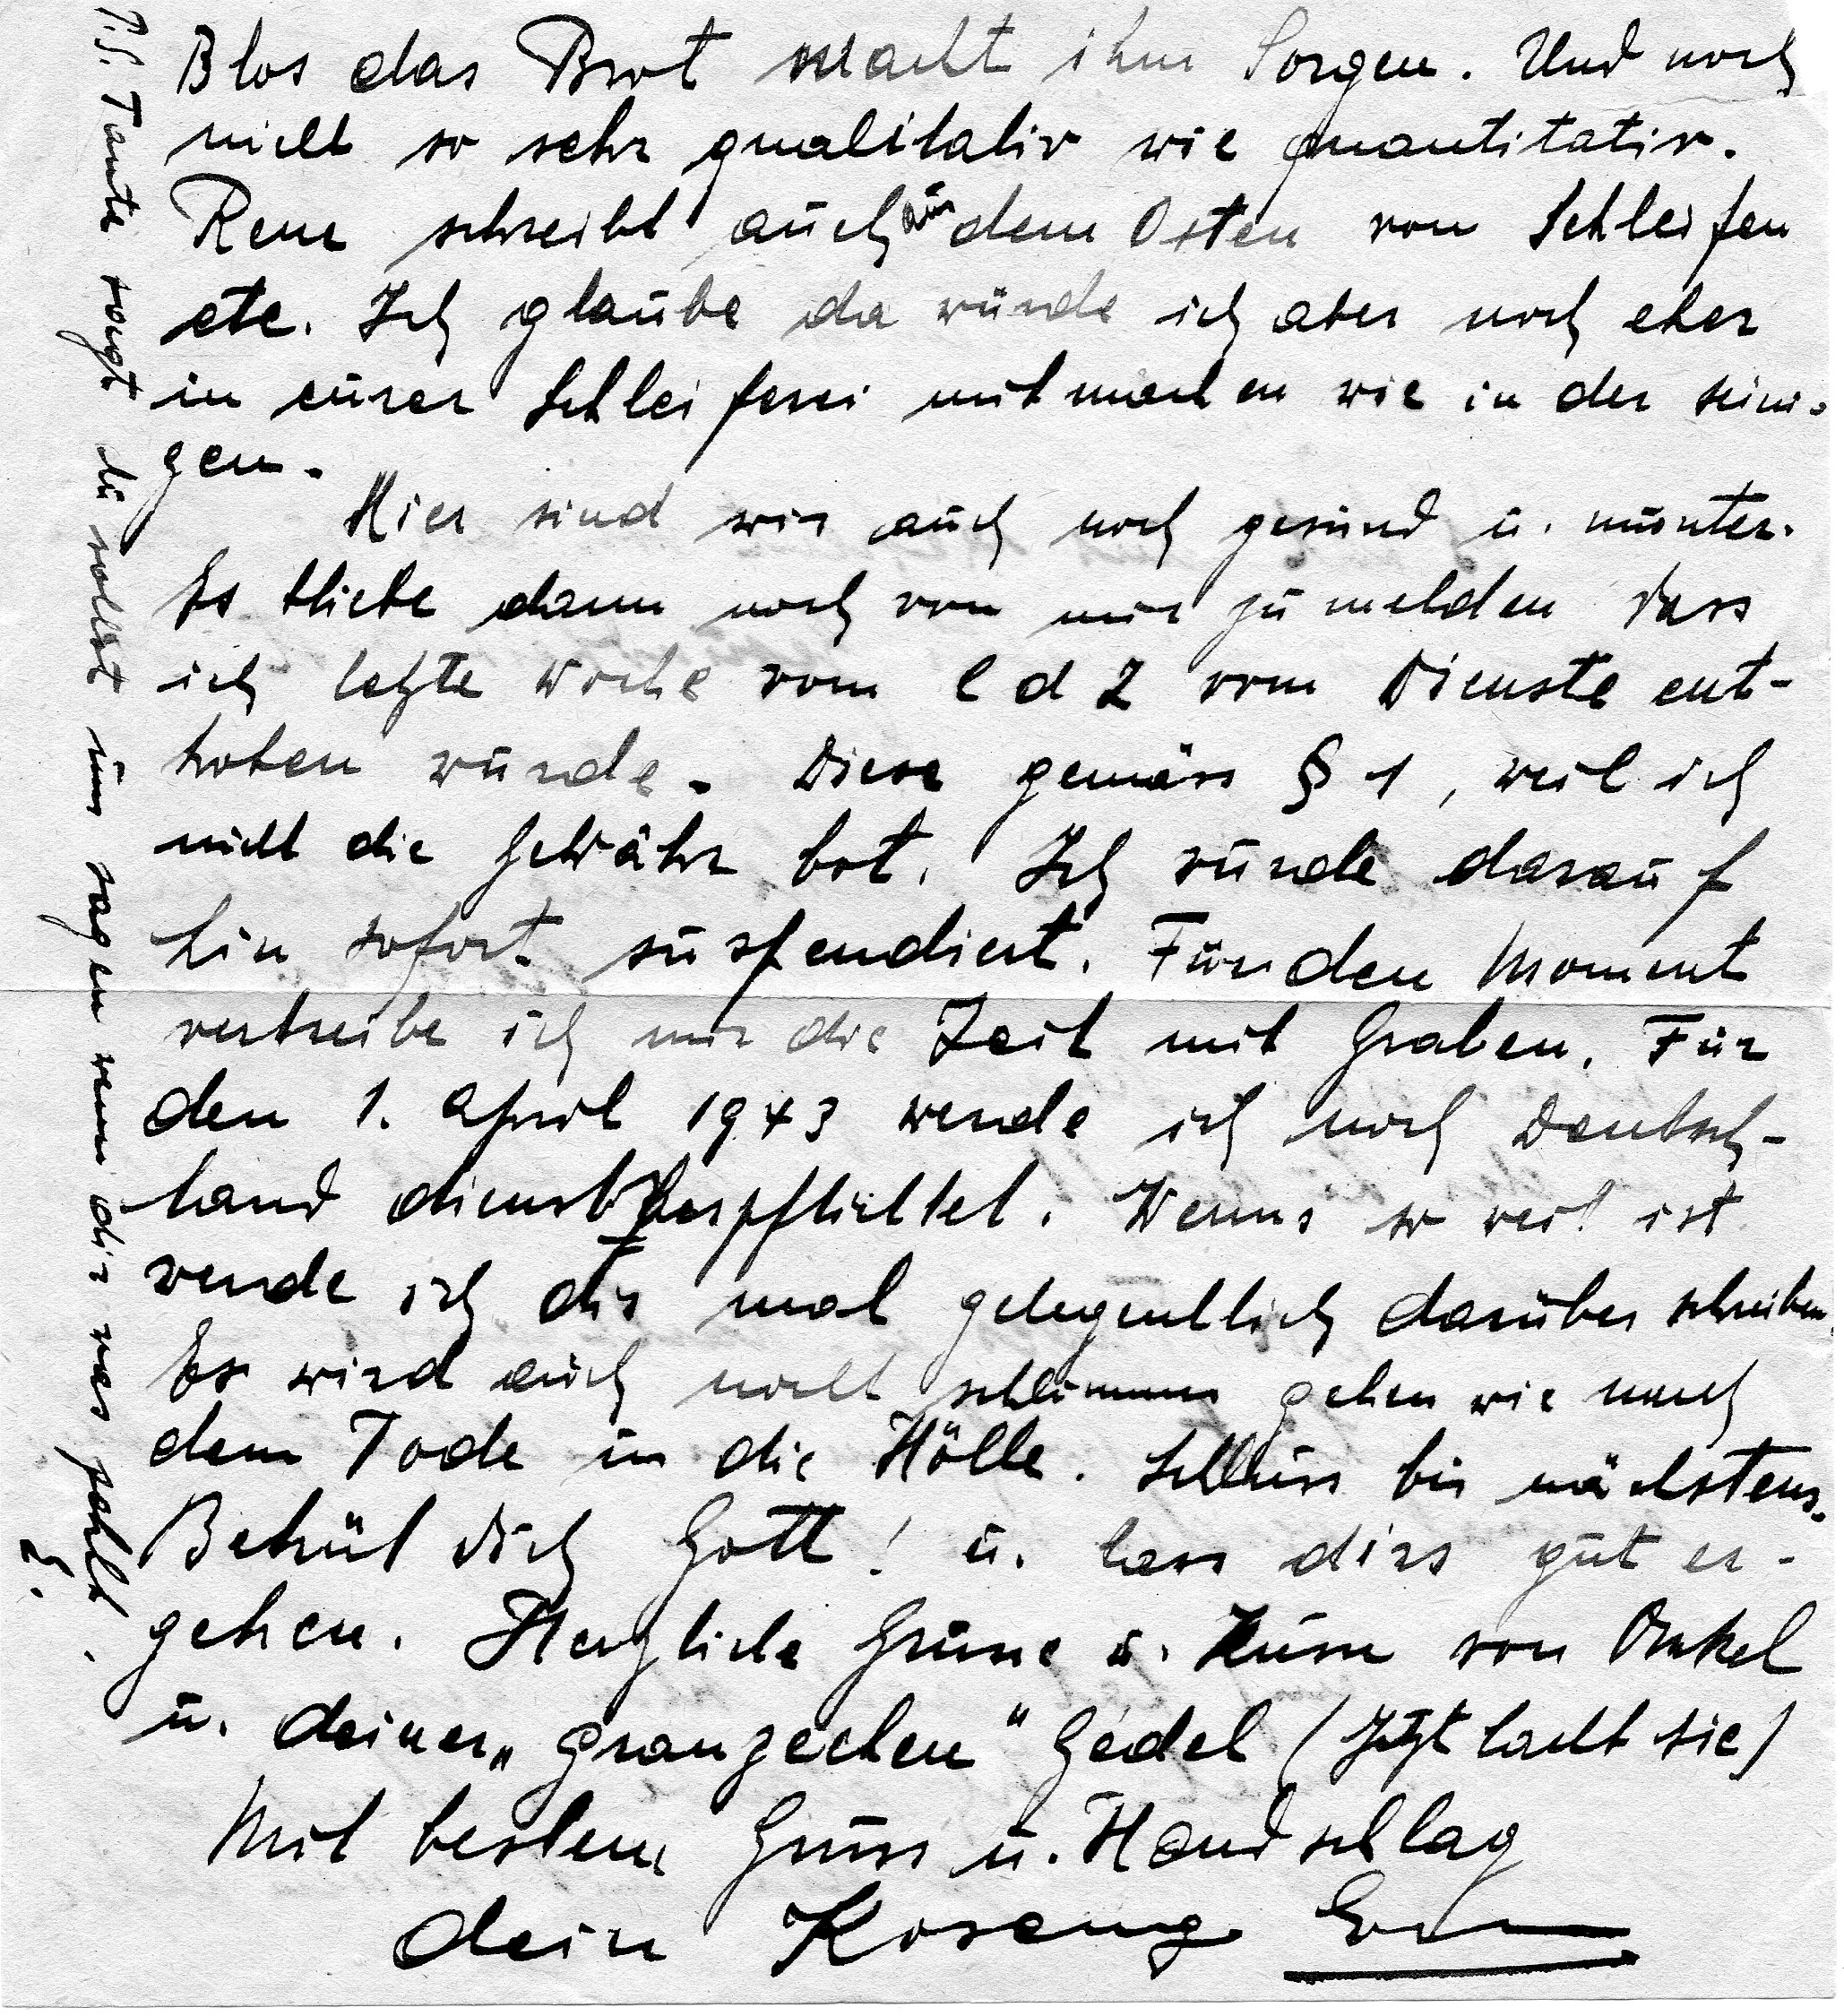 Blos das Brot macht ihm Sorgen. Und noch
nicht so sehr qualitativ wie quantitativ.
Rene schreibt auch aus dem Osten von Schleifen
etc. Ich glaube da würde ich aber noch eher
in eurer Schleiferei mitmachen wie in der seini-
gen.
Hier sind wir auch noch gesund u. munter.
Es bliebe dann noch von mir zu melden dass
ich letzte Woche vom C d Z vom Dienste ent-
hoben wurde. Diese gemäss § 1, weil ich
nicht die Gewähr bot. Ich wurde darauf
hin sofort suspendiert. Für den Moment
vertreibe ich mir die Zeit mit Graben. Für
den 1. April 1943 werde ich nach Deutsch-
land dienstverpflichtet. Wenns so weit ist
werde ich dir mal gelegentlich darüber schreiben.
Es wird auch nicht schlimmer gehen wie nach
dem Tode in die Hölle. Schluss bis nächstens.
Behüt dich Gott! u. lass dirs gut er-
gehen. Herzliche Grüsse u. Küsse von Onkel
u. deiner „ Gedel (Jetzt lacht sie)
Mit bestem Gruss u. Handschlag
dein Koseng
P.S. Tante sagt du sollst uns sagen wenn dir was fehlt.